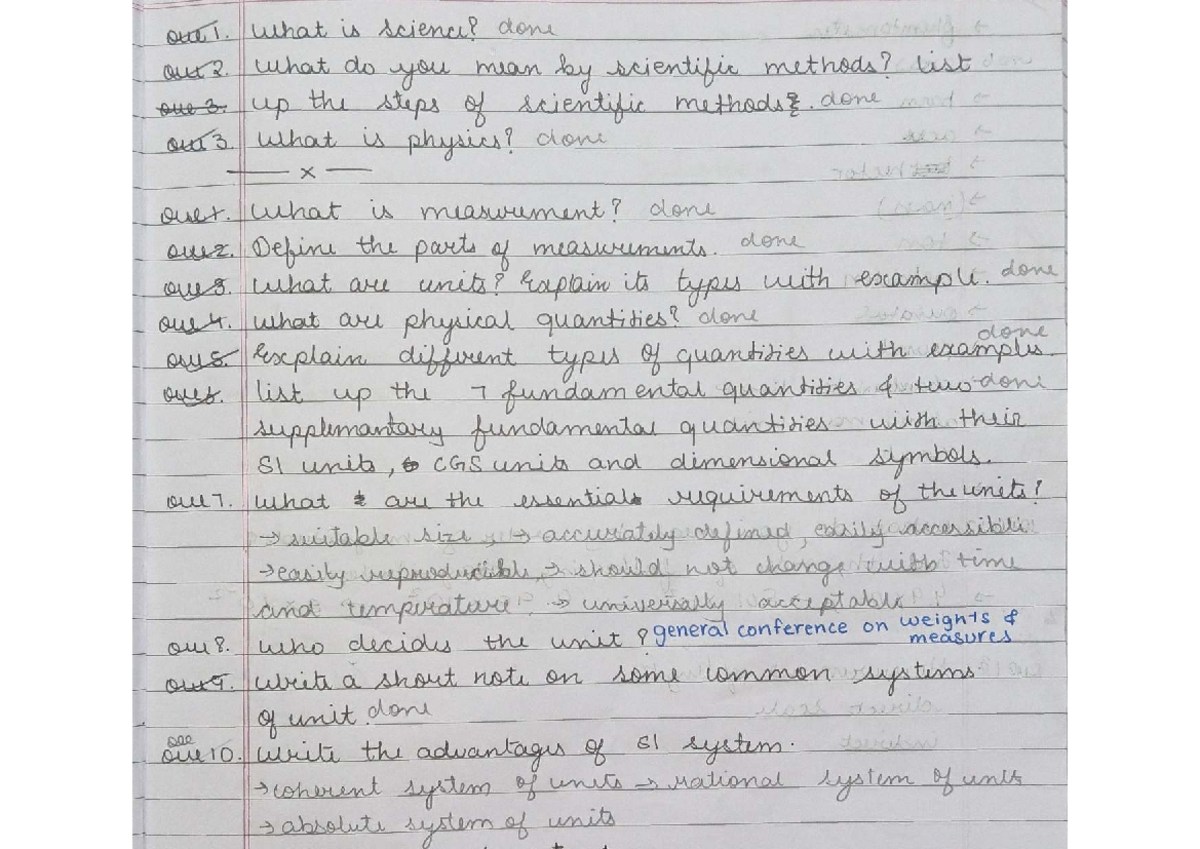 que 1. What is science? done
que 2. What do you mean by scientific methods? List
que 3. up the steps of scientific methods. done
que 3. What is physics? done
x
que 1. What is measurement? done
que 2. Define the parts of measurements. done
que 3. What are units? Explain its types with example. done
que 4. What are physical quantities? done
que 5. Explain different types of quantities with examples. done
que 6. list up the 7 fundamental quantities & two done
supplemantary fundamental quantities with their
SI units, CGS units and dimensional symbols.
que 7. What are the essential requirements of the units?
→ suitable size, → accurately defined, easily accessible
→ easily reproducible, → should not change with time
and temperature. → universally acceptable
que 8. who decides the unit? general conference on weights & measures
que 9. Write a short note on some common systems
of unit. done
que 10. Write the advantages of SI system.
→ coherent system of units → rational system of units
→ absolute system of units